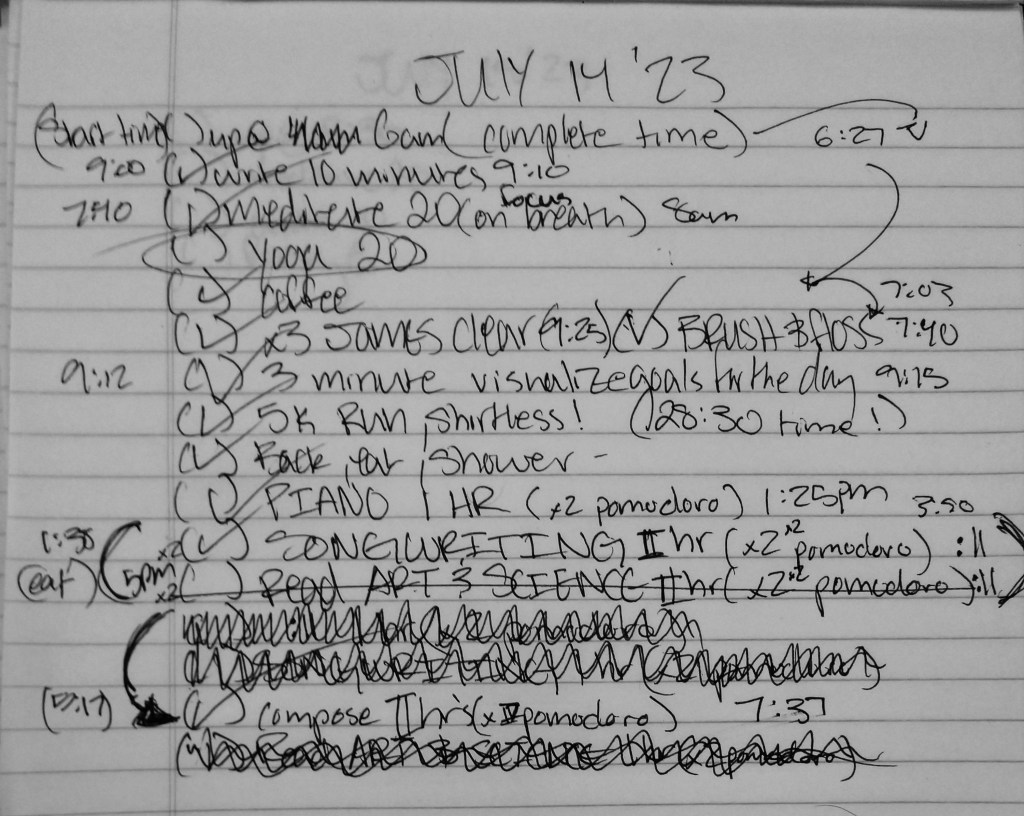 JULY 14 '23
(Start time) up@ 6am (complete time) 6:27
9:00 (✓) write 10 minutes 9:10
7:40 (✓) Meditate 20 (on focus breath) 8am
( ) yoga 20
(✓) coffee 7:03
(✓) x3 JAMES Clear (9:25) (✓) BRUSH & flOSS 7:40
9:12 (✓) 3 minute visualize goals for the day 9:15
(✓) 5K RUN, Shirtless! (28:30 time!)
(✓) Back, eat, shower -
(✓) PIANO 1 HR (x2 pomodoro) 1:25pm 3:50
1:38 x2 (✓) SONGWRITING II hr (x2 x2 pomodoro) :||
(eat) 5pm x2 ( ) Read ART & SCIENCE II hr (x2 x2 pomodoro) :||
(5:17) (✓) compose II hrs (x pomodoro) 7:37